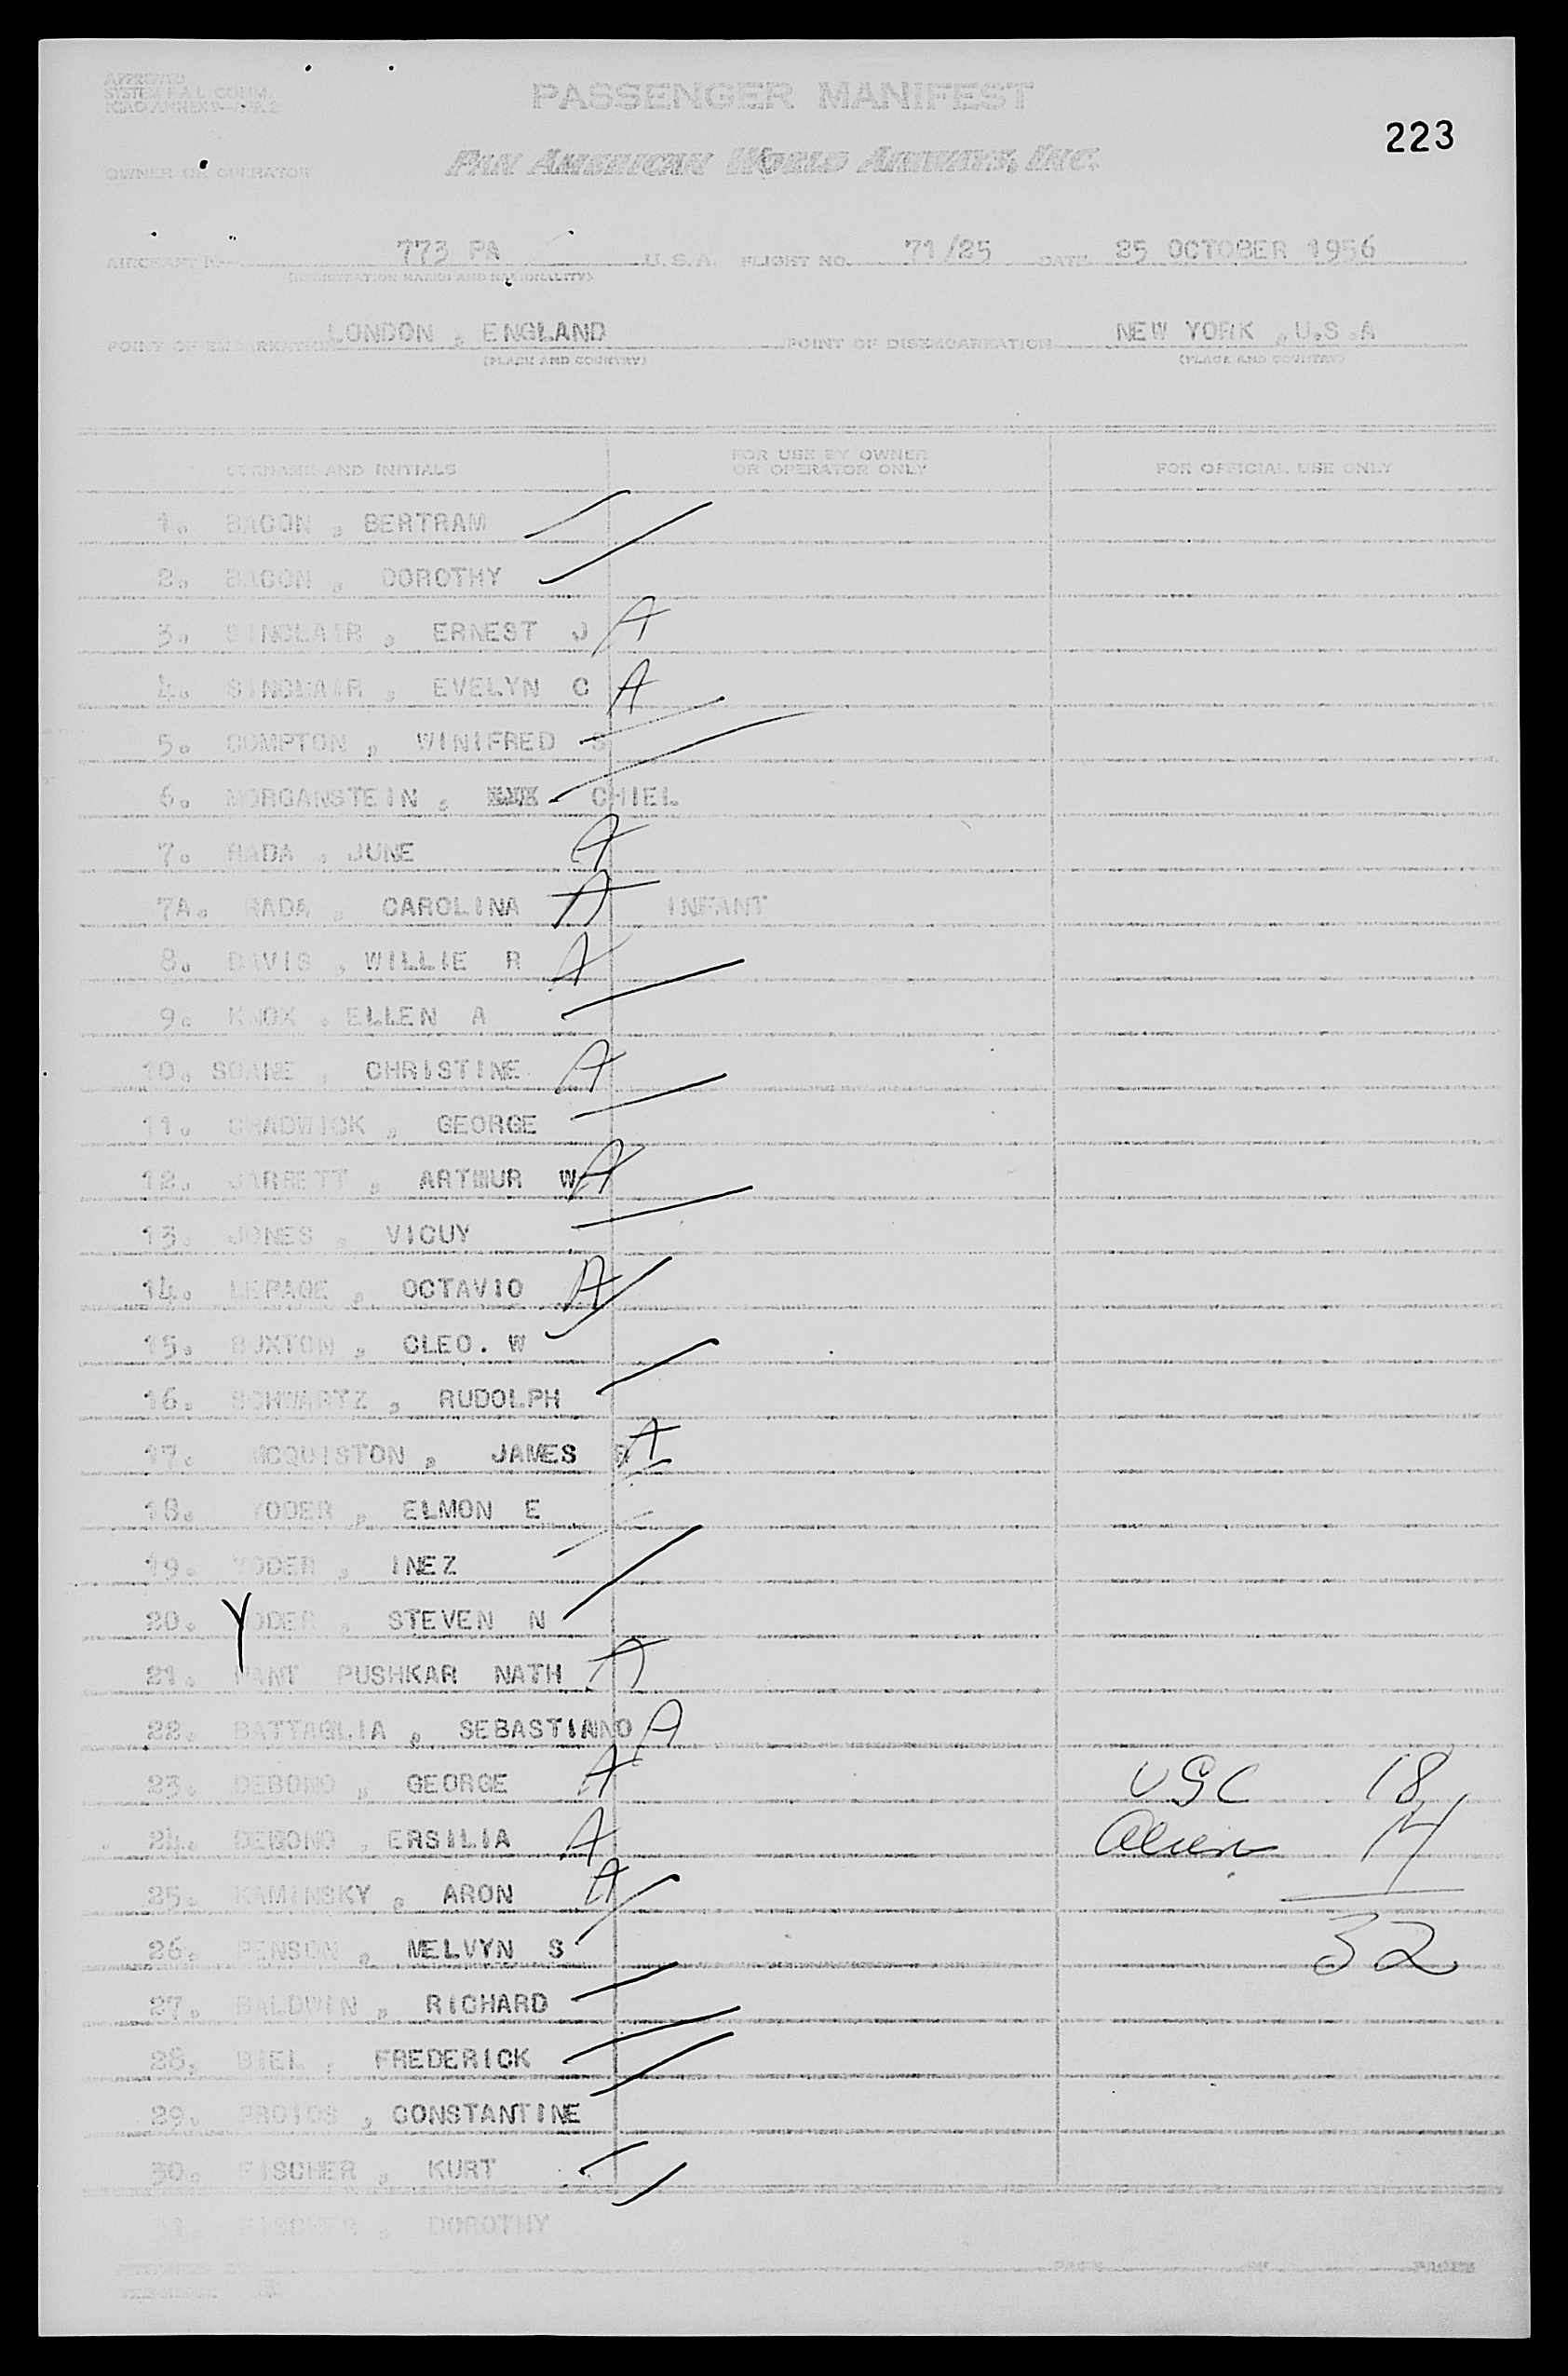 APPROVED
SYSTEM F.A.L. COMM.
PASSENGER MANIFEST
223
OWNER OR OPERATOR PAN AMERICAN WORLD AIRWAYS, INC.
AIRCRAFT 773 PA U.S.A. FLIGHT NO. 71/25 DATE 25 OCTOBER 1956
(REGISTRATION MARKS AND NATIONALITY)
POINT OF EMBARKATION LONDON , ENGLAND POINT OF DISEMBARKATION NEW YORK , U.S.A
(PLACE AND COUNTRY) (PLACE AND COUNTRY)
SURNAME AND INITIALS FOR USE BY OWNER OR OPERATOR ONLY FOR OFFICIAL USE ONLY
1. BACON , BERTRAM
2. BACON , DOROTHY
3. SINCLAIR , ERNEST J A
4. SINCLAIR , EVELYN C A
5. COMPTON , WINIFRED S
6. MORGANSTEIN , CHIEL
7. RADA , JUNE A
7A. RADA , CAROLINA A INFANT
8. DAVIS , WILLIE R A
9. KNOX , ELLEN A
10. SOANE , CHRISTINE A
11. CHADWICK , GEORGE
12. JARRETT , ARTHUR W A
13. JONES , VIGUY
14. LEPAGE , OCTAVIO A
15. BUXTON , CLEO. W
16. SCHWARTZ , RUDOLPH
17. MCQUISTON , JAMES R A
18. YODER , ELMON E
19. YODER , INEZ
20. YODER , STEVEN N
21. PANT PUSHKAR NATH A
22. BATTAGLIA , SEBASTIANO A
23. DEBONO , GEORGE A USC 18
24. DEBONO , ERSILIA A Alien 14
25. KAMINSKY , ARON A
26. BENSON , MELVYN S 32
27. BALDWIN , RICHARD
28. BIEL , FREDERICK
29. PROIOS , CONSTANTINE
30. FISCHER , KURT
FISCHER , DOROTHY